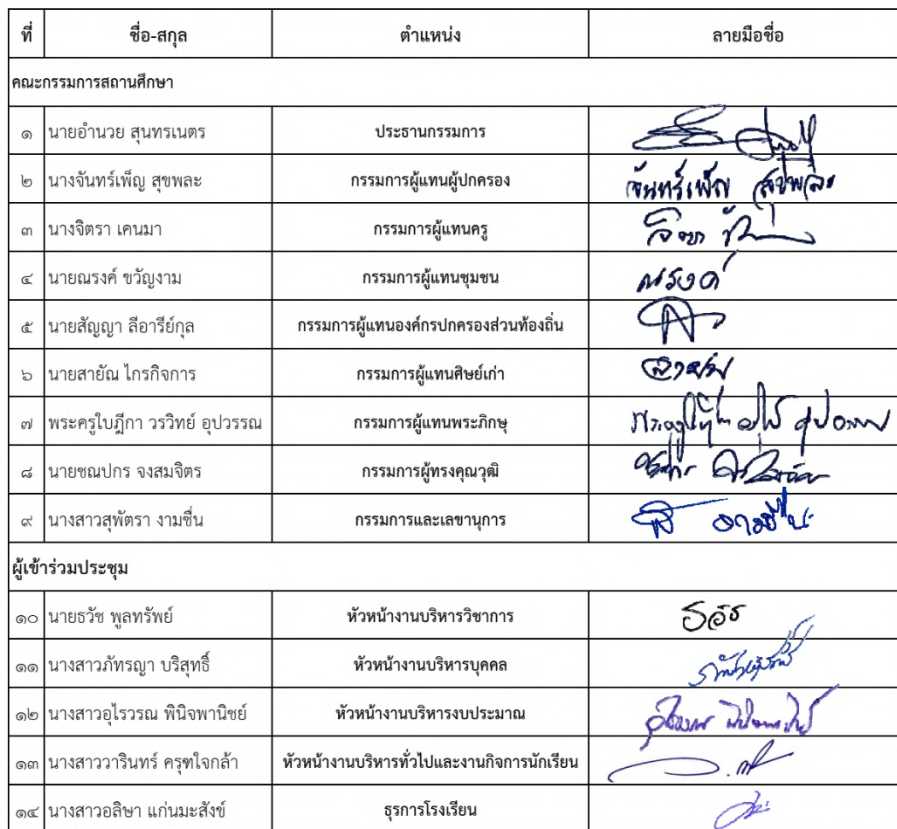 ที่ ชื่อ-สกุล ตำแหน่ง ลายมือชื่อ
คณะกรรมการสถานศึกษา
๑ นายอำนวย สุนทรเนตร ประธานกรรมการ
๒ นางจันทร์เพ็ญ สุขพละ กรรมการผู้แทนผู้ปกครอง จันทร์เพ็ญ สุขพละ
๓ นางจิตรา เคนมา กรรมการผู้แทนครู
๔ นายณรงค์ ขวัญงาม กรรมการผู้แทนชุมชน ณรงค์
๕ นายสัญญา ลีอารีย์กุล กรรมการผู้แทนองค์กรปกครองส่วนท้องถิ่น
๖ นายสายัณ ไกรกิจการ กรรมการผู้แทนศิษย์เก่า
๗ พระครูใบฎีกา วรวิทย์ อุปวรรณ กรรมการผู้แทนพระภิกษุ
๘ นายชณปกร จงสมจิตร กรรมการผู้ทรงคุณวุฒิ
๙ นางสาวสุพัตรา งามชื่น กรรมการและเลขานุการ
ผู้เข้าร่วมประชุม
๑๐ นายธวัช พูลทรัพย์ หัวหน้างานบริหารวิชาการ
๑๑ นางสาวภัทรญา บริสุทธิ์ หัวหน้างานบริหารบุคคล
๑๒ นางสาวอุไรวรรณ พินิจพานิชย์ หัวหน้างานบริหารงบประมาณ
๑๓ นางสาววารินทร์ ครุฑใจกล้า หัวหน้างานบริหารทั่วไปและงานกิจการนักเรียน
๑๔ นางสาวอลิษา แก่นมะสังข์ ธุรการโรงเรียน